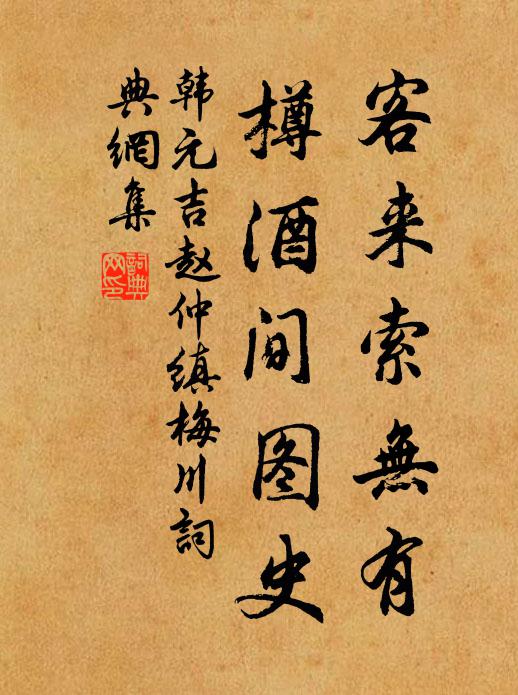 客来索無有
樽酒间图史
韩元吉赵仲缜梅川詞
典網集
詞典网印